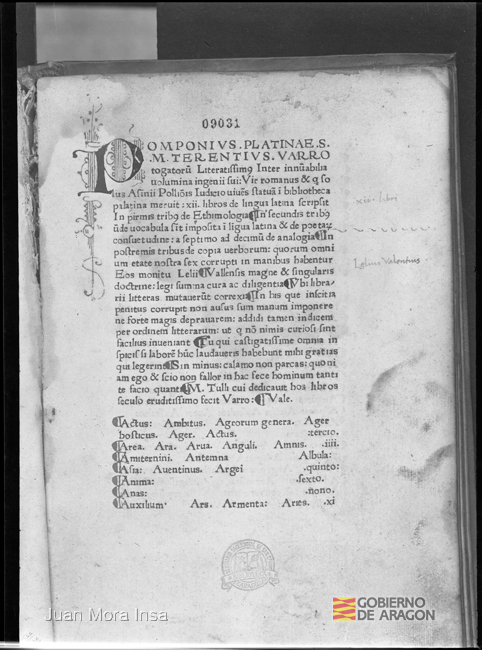 09031
POMPONIVS. PLATINAE. S.
.M. TERENTIVS. VARRO
togatorũ Literatissimꝰ Inter innũabilia
uolumina ingenii sui: Vir romanus & q̃ so
lus Asinii Polliõis Iudicio uiuẽs statuã ĩ bibliotheca
palatina meruit: xii. libros de lingua latina scripsit
In primis tribꝰ de Ethimologia ¶In secundis tribꝰ
dẽ uocabula sĩt imposita ĩ lĩgua latina & de poetarum
consuetudine: a septimo ad decimũ de analogia ¶In
postremis tribus de copia uerborum: quorum omni
um etate nostra sex corrupti in manibus habentur
Eos monitu Lelii ¶Vallensis magne & singularis
doctrine: legi summa cura ac diligentia ¶Vbi libra-
rii litteras mutauerũt correxi ¶In his que inscitia
penitus corrupit non ausus sum manum imponere
ne forte magis deprauarem: addidi tamen indicem
per ordinem litterarum: ut q̃ nõ nimis curiosi sint
facilius inueniant ¶Tu qui castigatissime omnia in-
spicis si laborẽ hũc laudaueris habebunt mihi gratias
qui legerint ¶Sin minus: calamo non parcas: quoni
am ego & scio non fallor in hac sece hominum tanti
te facio quanti ¶M. Tulli cui dedicauit hos libros
seculo eruditissimo fecit Varro: ¶Vale.
¶Actus: Ambitus. Agrorum genera. Ager
hosticus. Ager. Actus. .tercio.
¶Area. Ara. Arua. Anguli. Amnis. .iiii.
¶Amiternini. Antemna Albula:
¶Asia: Auentinus. Argei .quinto:
¶Anima: .sexto.
¶Anas: .nono.
¶Auxilium· Ars. Armenta: Aries. .xi
xii. libri
Lelius Valensius
Juan Mora Insa
GOBIERNO
DE ARAGON